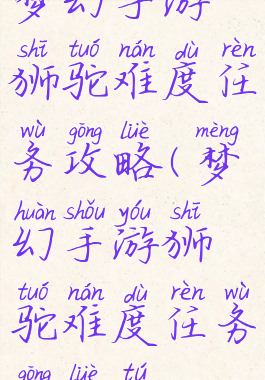 梦幻手游
shī tuó nán dù rèn
狮驼难度任
wù gōng lüè mèng
务攻略(梦
huàn shǒu yóu shī
幻手游狮
tuó nán dù rèn wù
驼难度任务
gōng lüè tú